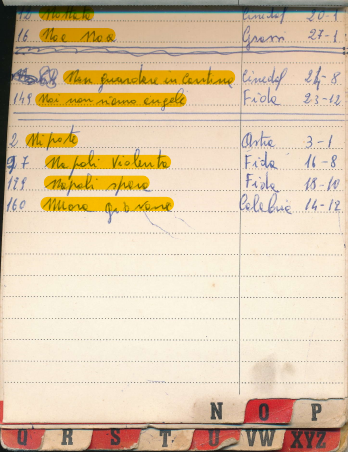 12 Cinedof 20-1
16 Noa Noa Grassi 27-1
Non guardare in cantina Cinedof 24-8
149 Noi non siamo angeli Fida 23-12
2 Nipote 3-1
97 Napoli violenta Fida 16-8
129 Napoli spara Fida 18-10
160 giovane 14-12
N O P
Q R S T U VW XYZ